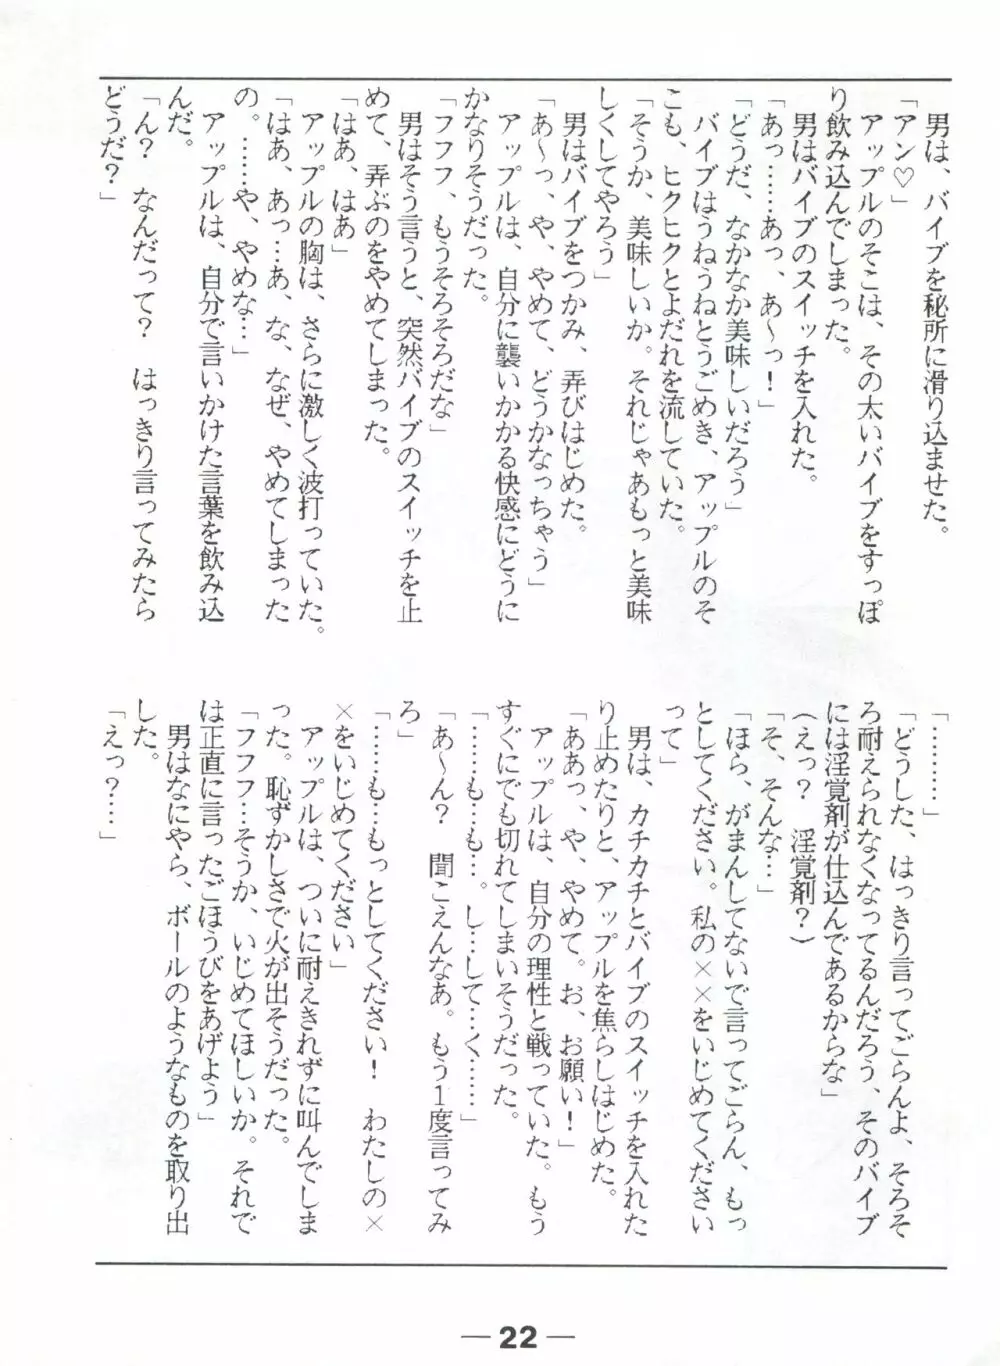 男は、バイブを秘所に滑り込ませた。
「アン♡」
アップルのそこは、その太いバイブをすっぽ
り飲み込んでしまった。
男はバイブのスイッチを入れた。
「あっ……あっ、あ～っ！」
「どうだ、なかなか美味しいだろう」
バイブはうねうねとうごめき、アップルのそ
こも、ヒクヒクとよだれを流していた。
「そうか、美味しいか。それじゃあもっと美味
しくしてやろう」
男はバイブをつかみ、弄びはじめた。
「あ～っ、や、やめて、どうかなっちゃう」
アップルは、自分に襲いかかる快感にどうに
かなりそうだった。
「フフフ、もうそろそろだな」
男はそう言うと、突然バイブのスイッチを止
めて、弄ぶのをやめてしまった。
「はあ、はあ」
アップルの胸は、さらに激しく波打っていた。
「はあ、あっ…あ、な、なぜ、やめてしまった
の。……や、やめな…」
アップルは、自分で言いかけた言葉を飲み込
んだ。
「ん？　なんだって？　はっきり言ってみたら
どうだ？」
「………」
「どうした、はっきり言ってごらんよ、そろそ
ろ耐えられなくなってるんだろう、そのバイブ
には淫覚剤が仕込んであるからな」
（えっ？　淫覚剤？）
「そ、そんな…」
「ほら、がまんしてないで言ってごらん、もっ
としてください。私の××をいじめてください
って」
男は、カチカチとバイブのスイッチを入れた
り止めたりと、アップルを焦らしはじめた。
「ああっ、や、やめて。お、お願い！」
アップルは、自分の理性と戦っていた。もう
すぐにでも切れてしまいそうだった。
「……も…も…。し…して…く……」
「あ～ん？　聞こえんなあ。もう1度言ってみ
ろ」
「……も…もっとしてください！　わたしの×
×をいじめてください」
アップルは、ついに耐えきれずに叫んでしま
った。恥ずかしさで火が出そうだった。
「フフフ…そうか、いじめてほしいか。それで
は正直に言ったごほうびをあげよう」
男はなにやら、ボールのようなものを取り出
した。
「えっ？…」
— 22 —